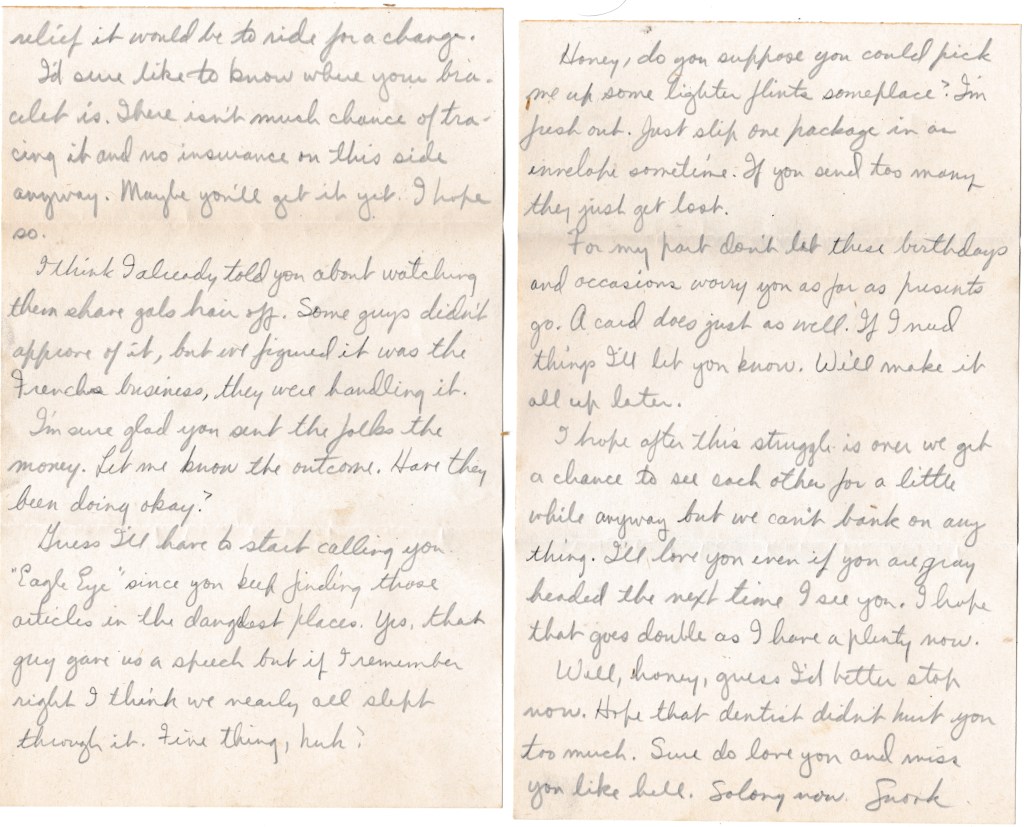 relief it would be to ride for a change.
I'd sure like to know where your bra-
celet is. There isn't much chance of tra-
cing it and no insurance on this side
anyway. Maybe you'll get it yet. I hope
so.
I think I already told you about watching
them shave gals hair off. Some guys didn't
approve of it, but we figured it was the
Frenchs business, they were handling it.
I'm sure glad you sent the folks the
money. Let me know the outcome. Have they
been doing okay?
Guess I'll have to start calling you
"Eagle Eye" since you keep finding those
articles in the dangdest places. Yes, that
guy gave us a speech but if I remember
right I think we nearly all slept
through it. Fine thing, huh?
Honey, do you suppose you could pick
me up some lighter flints someplace? I'm
fresh out. Just slip one package in an
envelope sometime. If you send too many
they just get lost.
For my part don't let these birthdays
and occasions worry you as far as presents
go. A card does just as well. If I need
things I'll let you know. We'll make it
all up later.
I hope after this struggle is over we get
a chance to see each other for a little
while anyway but we can't bank on any
thing. I'll love you even if you are gray
headed the next time I see you. I hope
that goes double as I have a plenty now.
Well, honey, guess I'd better stop
now. Hope that dentist didn't hurt you
too much. Sure do love you and miss
you like hell. Solong now. Snork